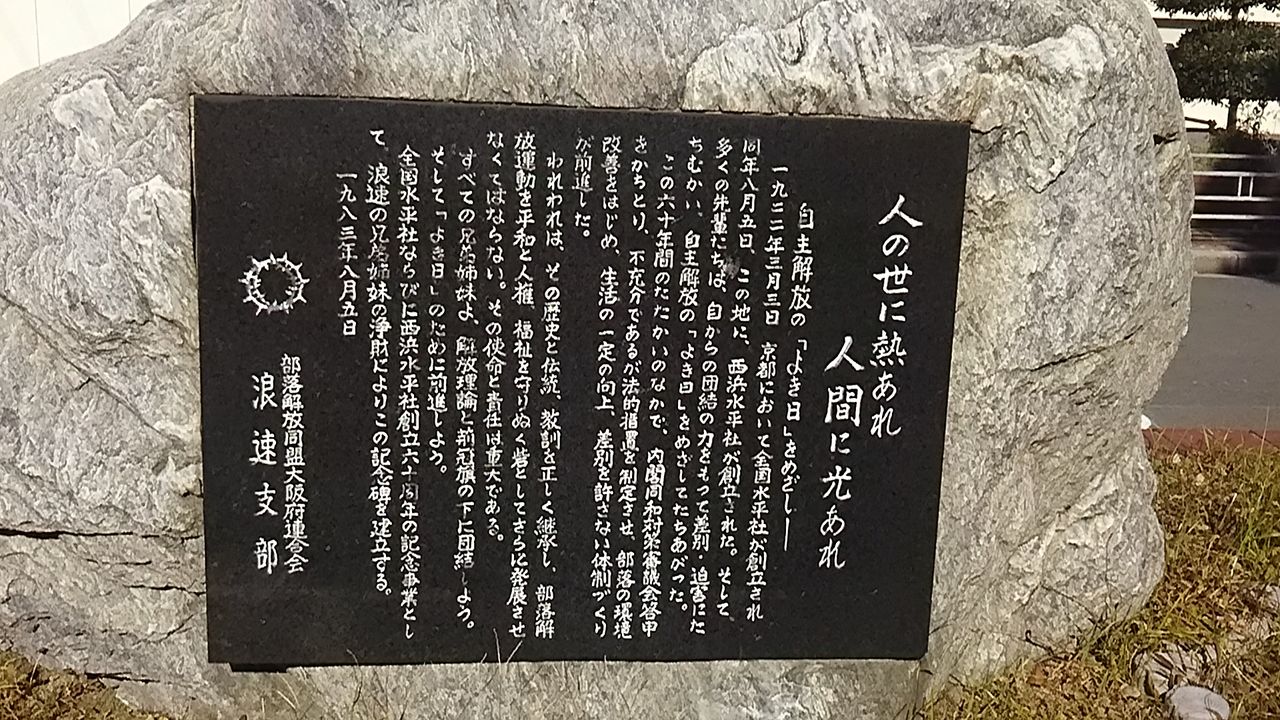 人の世に熱あれ
人間に光あれ
自主解放の「よき日」をめざし――
一九二二年三月三日 京都において全国水平社が創立され
同年八月五日、この地に、西浜水平社が創立された。そして、
多くの先輩たちは、自からの団結の力をもって差別・迫害にた
ちむかい、自主解放の「よき日」をめざしてたちあがった。
この六十年間のたたかいのなかで、内閣同和対策審議会答申
をかちとり、不充分であるが法的措置を制定させ、部落の環境
改善をはじめ、生活の一定の向上、差別を許さない体制づくり
が前進した。
われわれは、その歴史と伝統、教訓を正しく継承し、部落解
放運動を平和と人権、福祉を守りぬく砦としてさらに発展させ
なくてはならない。その使命と責任は重大である。
すべての兄弟姉妹よ、解放理論と荊冠旗の下に団結しよう。
そして「よき日」のために前進しよう。
全国水平社ならびに西浜水平社創立六十周年の記念事業とし
て、浪速の兄弟姉妹の浄財によりこの記念碑を建立する。
一九八三年八月五日
部落解放同盟大阪府連合会
浪速支部